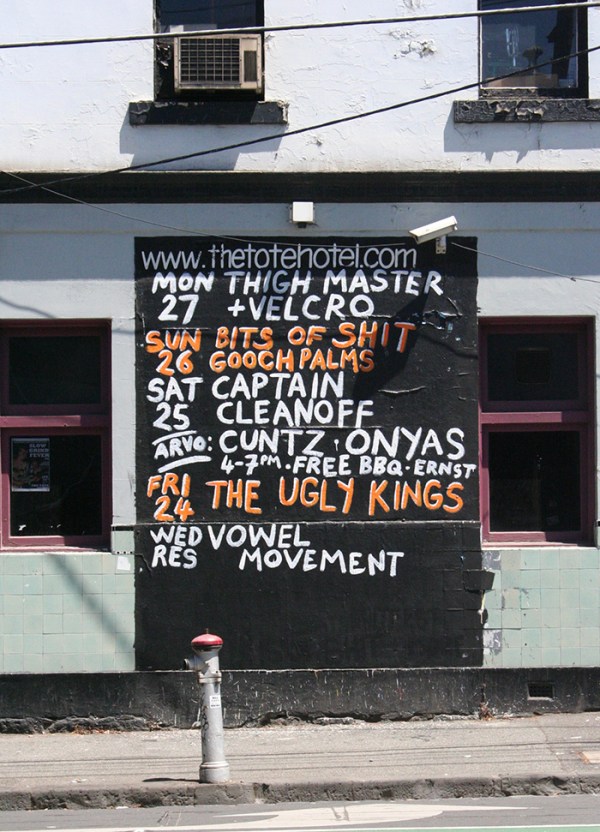 www.thetotehotel.com
MON THIGH MASTER
27 +VELCRO
SUN BITS OF SHIT
26 GOOCH PALMS
SAT CAPTAIN
25 CLEANOFF
ARVO: CUNTZ · ONYAS
4-7PM · FREE BBQ · ERNST
FRI THE UGLY KINGS
24
WED VOWEL
RES MOVEMENT